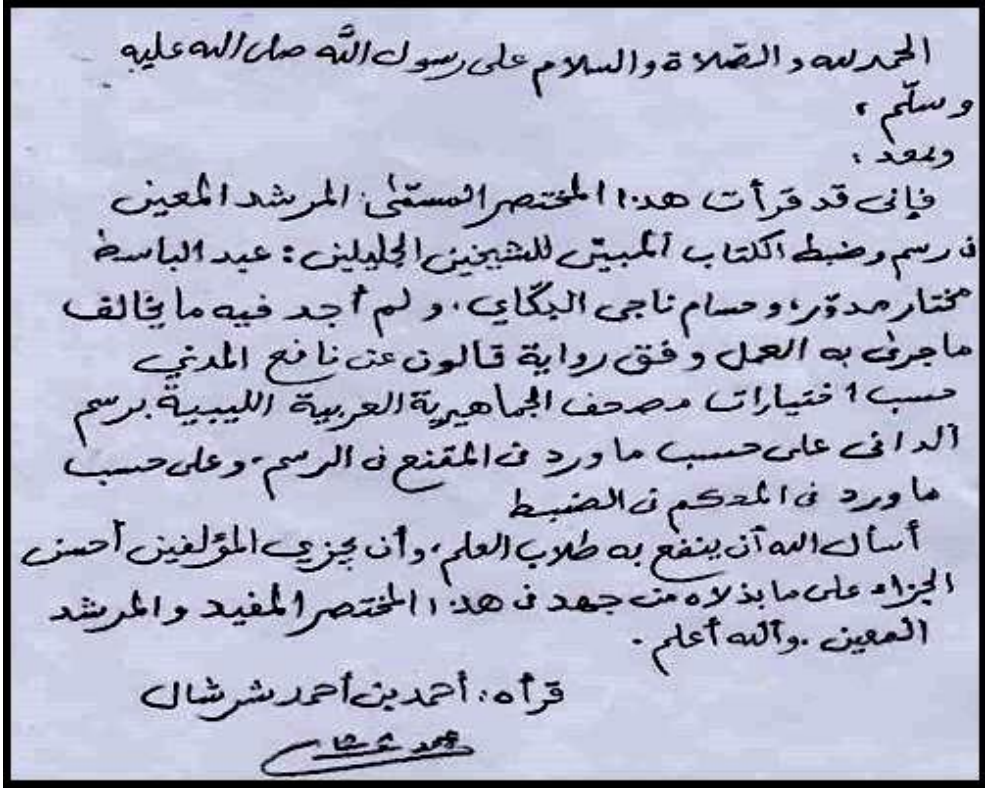 الحمد لله والصّلاة والسلام على رسول اللّه صلى الله عليه
وسلّم ،
وبعد :
فإنى قد قرأت هذا المختصر المسمّى: المرشد المعين
فى رسم وضبط الكتاب المبين للشيخين الجليلين : عبد الباسط
مختار مدوّر، وحسام ناجى البگاى ، ولم أجد فيه ما يخالف
ما جرى به العمل وفق رواية قالون عن نافع المدني
حسب اختيارات مصحف الجماهيرية العربية الليبية برسم
الدانى على حسب ما ورد فى المقنع فى الرسم ، وعلى حسب
ما ورد فى المحكم فى الضبط
أسأل الله أن ينفع به طلاب العلم ، وأن يجزي المؤلفين أحسن
الجزاء على ما بذلاه من جهد فى هذا المختصر المفيد والمرشد
المعين . والله أعلم .
قرأه : أحمد بن أحمد شرشال